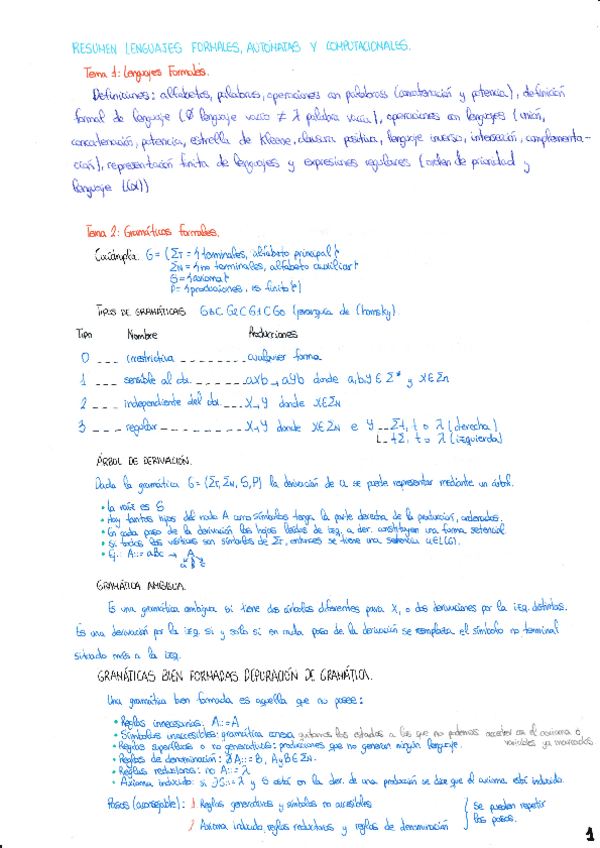 RESUMEN LENGUAJES FORMALES, AUTÓMATAS Y COMPUTACIONALES.
Tema 1: Lenguajes Formales.
Definiciones: alfabetos, palabras, operaciones con palabras (concatenación y potencia), definición
formal de lenguaje (∅ lenguaje vacío ≠ λ palabra vacía), operaciones con lenguajes (unión,
concatenación, potencia, estrella de Kleene, clausura positiva, lenguaje inverso, intersección, complementa-
ción), representación finita de lenguajes y expresiones regulares (orden de prioridad y
lenguaje L(α))
Tema 2: Gramáticas formales.
G = (ΣT = {terminales, alfabeto principal}
ΣN = {no terminales, alfabeto auxiliar}
S = {axioma}
P = {producciones, es finito})
TIPOS DE GRAMÁTICAS G3CG2CG1CG0 (jerarquía de Chomsky)
Tipo Nombre Producciones
0 --- irrestrictiva -------- cualquier forma
1 --- sensible al cto. ------- aXb → aYb donde a,b,Y ∈ Σ* y X ∈ ΣN
2 --- independiente del cto. --- X→Y donde X∈ΣN
3 --- regular ---------- X→Y donde X∈ΣN e Y -- Σt, t o λ (derecha)
tΣ, t o λ (izquierda)
ÁRBOL DE DERIVACIÓN.
Dada la gramática G = (ΣT, ΣN, S, P) la derivación de u se puede representar mediante un árbol.
• La raíz es S
• Hay tantos hijos del nodo A como símbolos tenga la parte derecha de la producción, ordenados.
• En cada paso de la derivación las hojas leídas de izq. a der. constituyen una forma sentencial
• Si todos los vértices son símbolos de ΣT, entonces se tiene una sentencia u∈L(G).
• Ej.: A::= aBc → A
a B c
GRAMÁTICA AMBIGUA.
Es una gramática ambigua si tiene dos árboles diferentes para X, o dos derivaciones por la izq. distintas.
Es una derivación por la izq. si y solo si en cada paso de la derivación se remplaza el símbolo no terminal
situado más a la izq.
GRAMÁTICAS BIEN FORMADAS DEPURACIÓN DE GRAMÁTICA.
Una gramática bien formada es aquella que no posee:
• Reglas innecesarias: A::=A
• Símbolos inaccesibles: gramática conexa quitamos los estados a los que no podemos acceder con el axioma o
variables ya marcadas.
• Reglas superfluas o no generativas: producciones que no generan ningún lenguaje.
• Reglas de denominación: A::= B, A y B ∈ ΣN.
• Reglas reductoras: no A::= λ
• Axioma inducido: si S::= λ y S está en la der. de una producción se dice que el axioma está inducido.
Pasos (aconsejable): Reglas generativas y símbolos no accesibles
Se pueden repetir
los pasos.
Axioma inducido, reglas reductoras y reglas de denominación
1